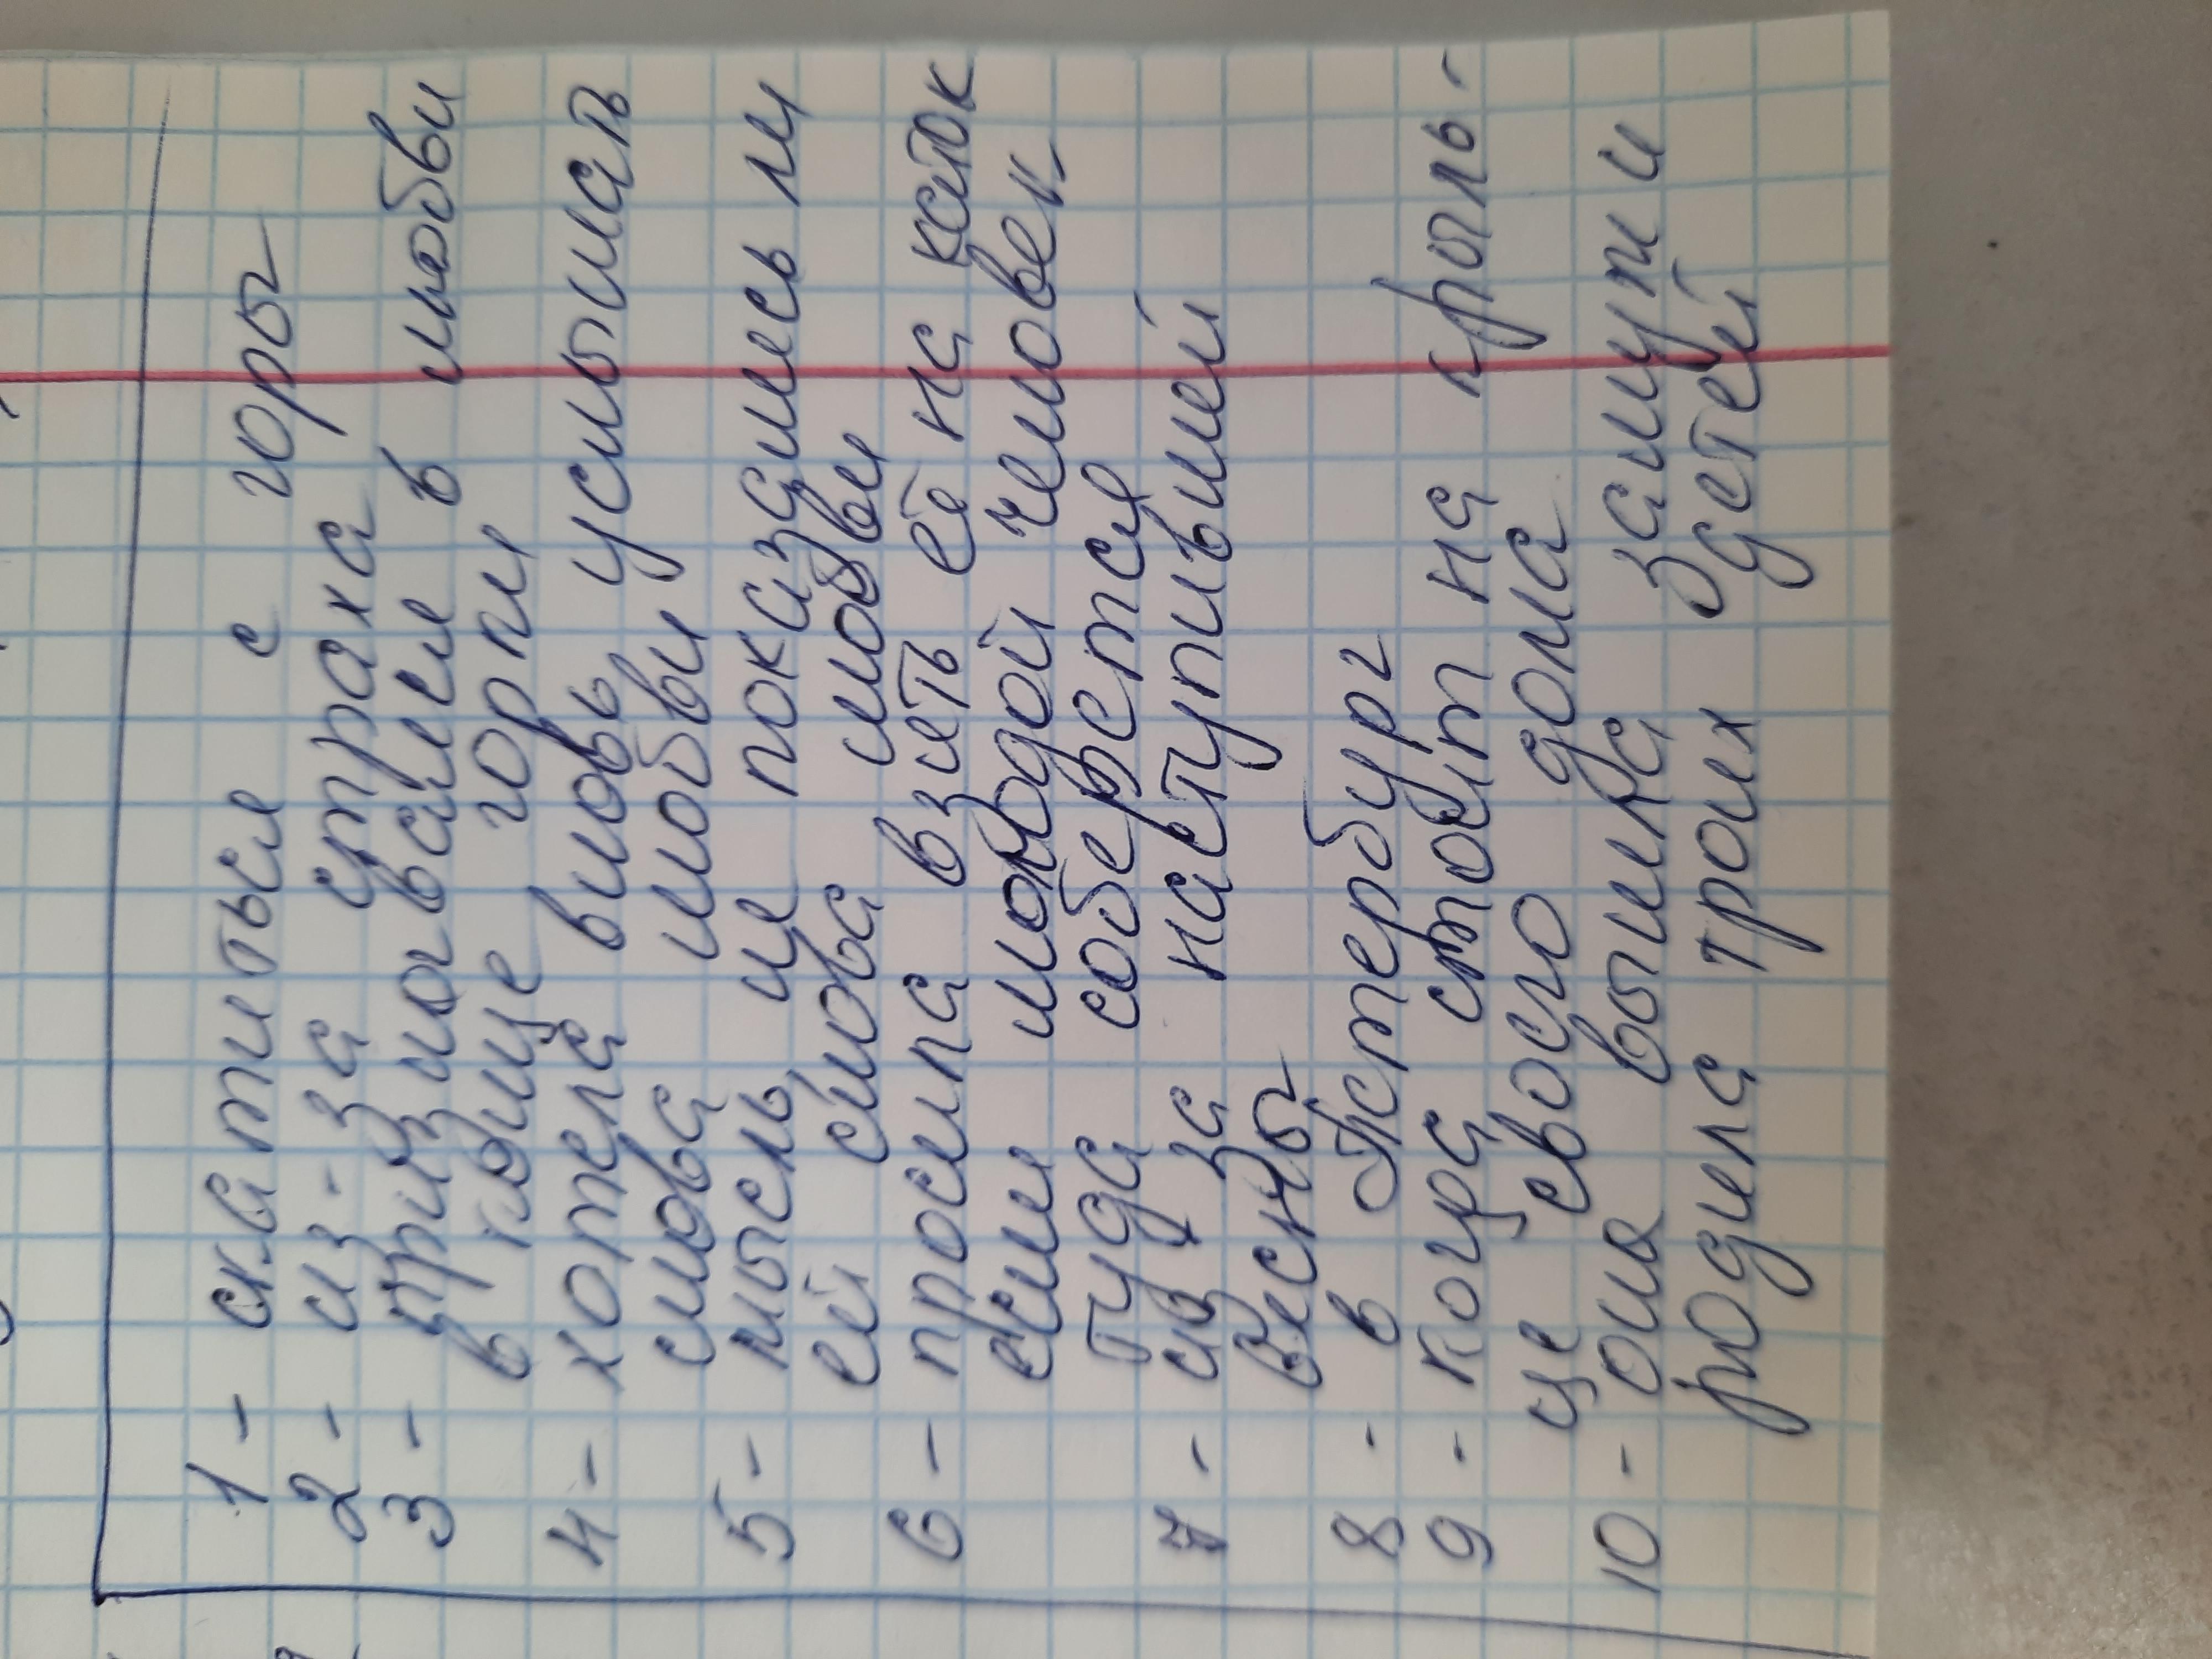 1 - скатиться с горы
2 - из-за страха
3 - признавался в любви
в конце горки
4 - хотела вновь услышать
слова любви
5 - мысль, не показались ли
ей слова любви
6 - просила взять её на каток
если молодой человек
туда соберется
7 - из за наступившей
весны
8 - в Петербург
9 - когда стоит на крыль-
це своего дома
10 - она вышла замуж и
родила троих детей